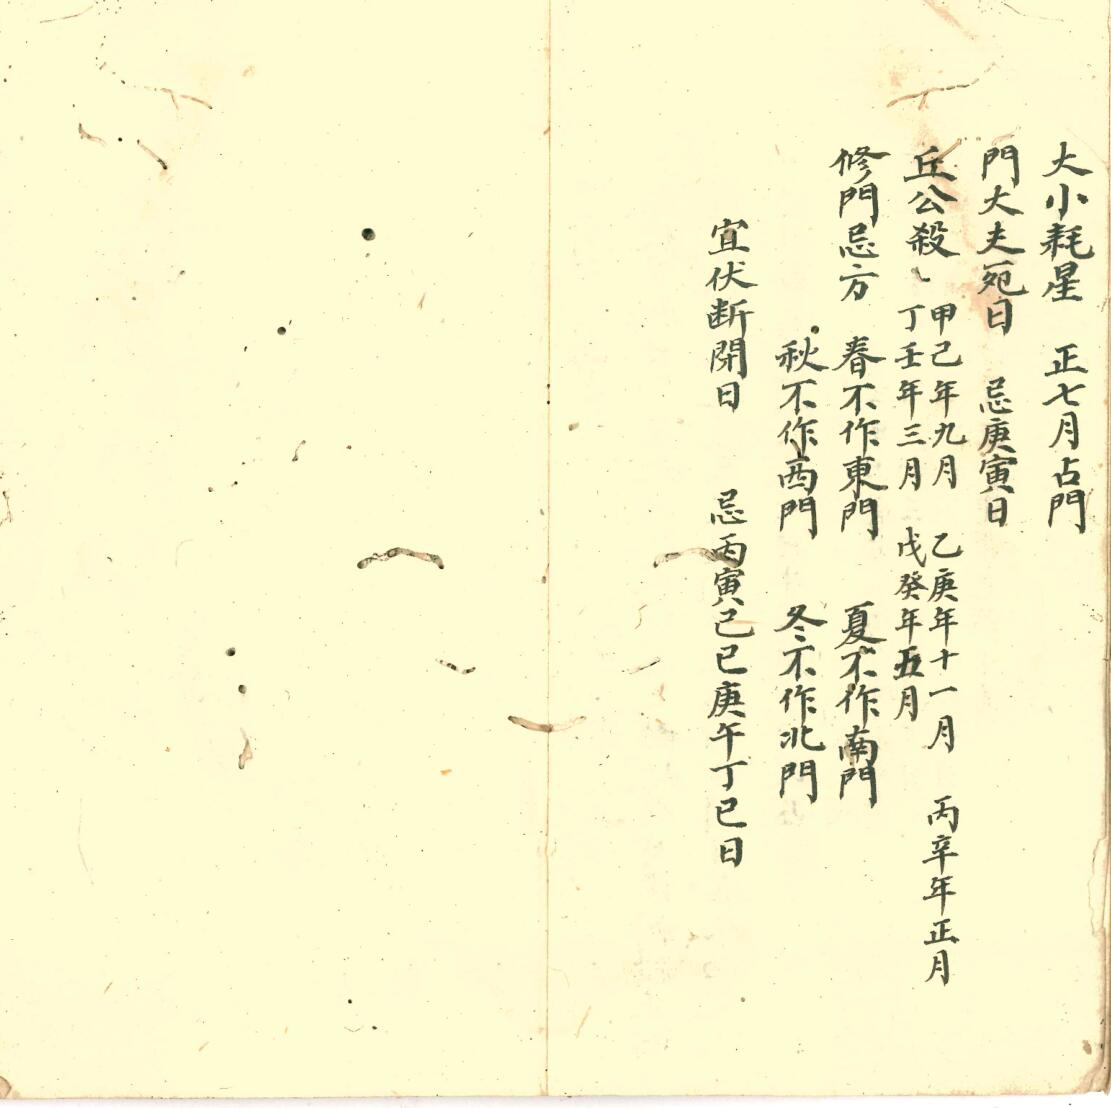 大小耗星 正七月占門
門大夫死日 忌庚寅日
丘公殺 甲己年九月 乙庚年十一月 丙辛年正月
丁壬年三月 戊癸年五月
修門忌方 春不作東門 夏不作南門
秋不作西門 冬不作北門
宜伏断閉日 忌丙寅己巳庚午丁巳日